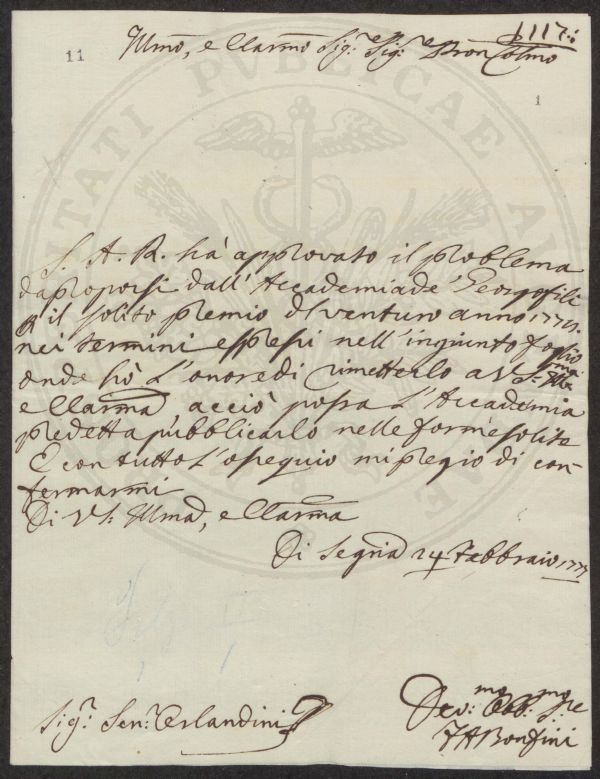 117:
11
Illmo, e Clarmo Sig.re Sig.re Pron Colmo
1
S. A. R. hà approvato il problema
da proporsi dall'Accademia de' Georgofili
p il solito premio dl venturo anno 1778.
nei termini espressi nell'ingiunto foglio
onde hò L'onore di rimetterlo a V S. Illma
e Clarma, acciò possa L'Accademia
predetta pubblicarlo nelle forme solite
E con tutto L'ossequio mi pregio di con-
fermarmi
Di VS: Illma, e Clarma
Di Segria 24 Febbraio 1777
Sig.r Sen.r Orlandini
Dev:mo Obb:mo S.re
F A Bonfini